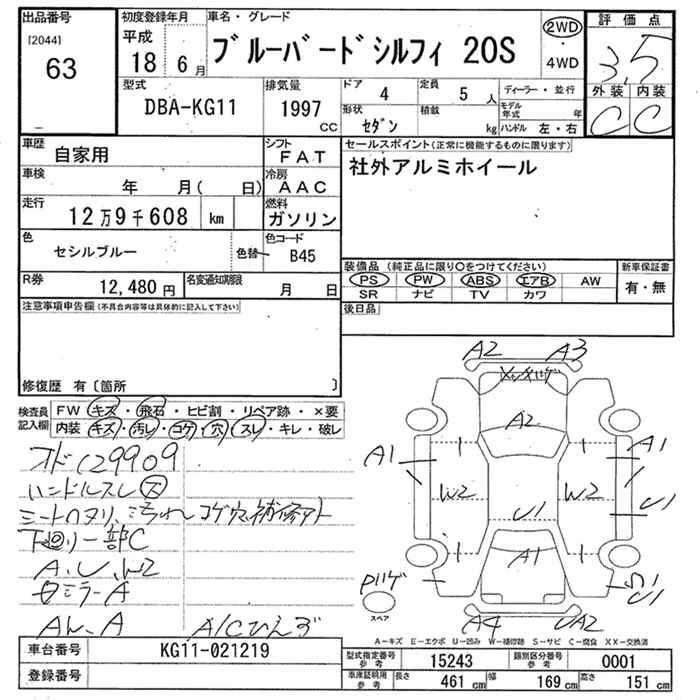 出品番号
[2044]
63
初度登録年月
平成
18 6月
車名・グレード
ブルーバードシルフィ 20S
2WD
・
4WD
評価点
3.5
外装 内装
C C
型式
DBA-KG11
排気量
1997
CC
ドア
4
定員
5 人
形状
セダン
積載
kg
ディーラー・並行
モデル年式 年
ハンドル 左・右
車歴
自家用
シフト
FAT
車検
年 月( 日)
冷房
AAC
走行
12万9千608 km
燃料
ガソリン
色
セシルブルー
色替
色コード
B45
R券
12,480円
名変通知期限
月 日
セールスポイント(正常に機能するものに限ります)
社外アルミホイール
装備品 (純正品に限り○をつけてください)
PS PW ABS エアB AW
SR ナビ TV カワ
新車保証書
有・無
後日品
注意事項申告欄(不具合内容等は具体的に記入して下さい)
修復歴 有〔箇所 〕
検査員
記入欄
FW キズ・飛石・ヒビ割・リペア跡・×要
内装 キズ・汚レ・コゲ・穴・スレ・キレ・破レ
ハンドルスレ
シートヘタリ、汚れ コゲ穴補修アト
下回り一部C
A、U、W2
ミラーA
A/C
A2 A3
A2
A1 A1
W2 W2
U1 U1
A1
スペア
U1
A4 UA2
A-キズ E-エクボ U-凹み W-補修跡 S-サビ C-腐食 XX-交換済
車台番号
KG11-021219
登録番号
型式指定番号
参考
15243
類別区分番号
参考
0001
車庫証明用
参考
長さ
461 cm
幅
169 cm
高さ
151 cm